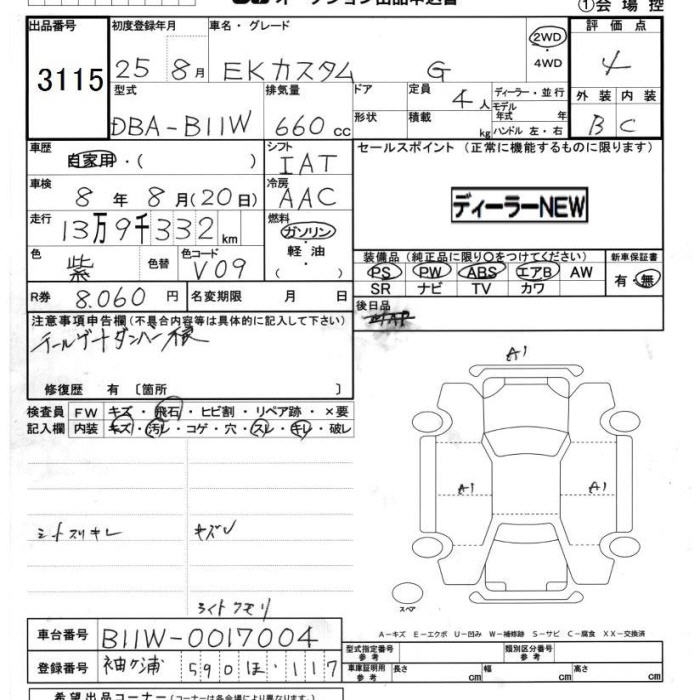 オークション出品申込書
①会場控
出品番号
3115
初度登録年月
25 8月
車名・グレード
EKカスタム G
2WD
・4WD
評価点
4
型式
DBA-B11W
排気量
660cc
ドア
形状
定員
4人
積載
kg
ディーラー・並行
モデル年式 年
ハンドル 左・右
外装 内装
B C
車歴
自家用・( )
シフト
IAT
セールスポイント (正常に機能するものに限ります)
車検
8年8月(20日)
冷房
AAC
ディーラーNEW
走行
13万9千332km
燃料
ガソリン・
軽油・
( )
色
紫
色替
色コード
V09
装備品(純正品に限り○をつけてください)
PS PW ABS エアB AW
SR ナビ TV カワ
新車保証書
有・無
R券 8.060円
名変期限 月 日
後日品
注意事項申告欄(不具合内容等は具体的に記入して下さい)
修復歴 有 〔箇所 〕
検査員 FW キズ・飛石・ヒビ割・リペア跡・×要
記入欄 内装 キズ・汚レ・コゲ・穴・スレ・キレ・破レ
A1
A1 A1
シートスリキレ キズレ
ライトクモリ
スペア
A-キズ E-エクボ U-凹み W-補修跡 S-サビ C-腐食 XX-交換済
車台番号 B11W-0017004
登録番号 袖ケ浦 590 ほ ・117
型式指定番号 参考
類別区分番号 参考
車庫証明用 参考 長さ cm 幅 cm 高さ cm
希望出品コーナー(コーナーは各会場により異なります。)